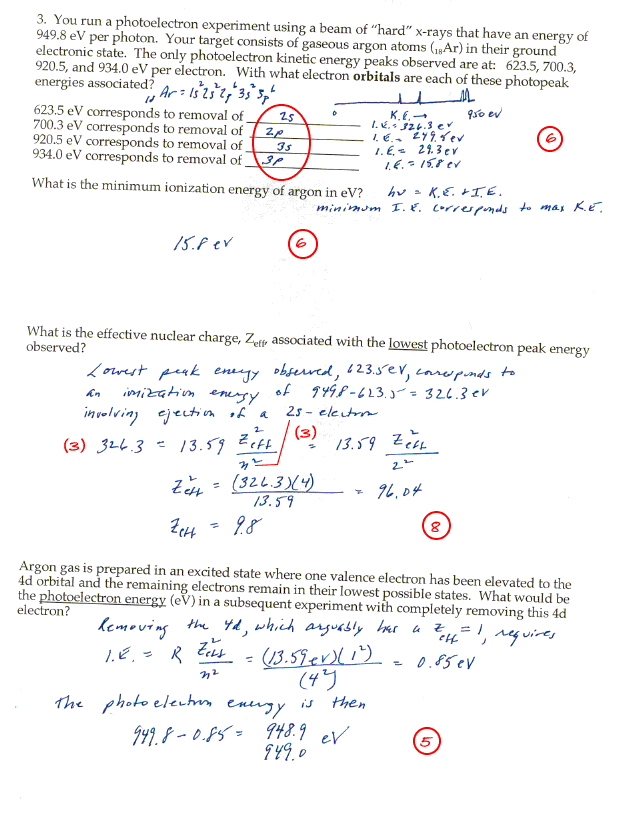 3. You run a photoelectron experiment using a beam of "hard" x-rays that have an energy of
949.8 eV per photon. Your target consists of gaseous argon atoms (₁₈Ar) in their ground
electronic state. The only photoelectron kinetic energy peaks observed are at: 623.5, 700.3,
920.5, and 934.0 eV per electron. With what electron orbitals are each of these photopeak
energies associated?
₁₈Ar = 1s² 2s² 2p⁶ 3s² 3p⁶
0 K.E. → 950 eV
623.5 eV corresponds to removal of 2s I.E. = 326.3 eV
700.3 eV corresponds to removal of 2p I.E. = 249.5 eV
920.5 eV corresponds to removal of 3s I.E. = 29.3 eV
934.0 eV corresponds to removal of 3p I.E. = 15.8 eV
6
What is the minimum ionization energy of argon in eV? hν = K.E. + I.E.
minimum I.E. corresponds to max K.E.
15.8 eV 6
What is the effective nuclear charge, Zeff, associated with the lowest photoelectron peak energy
observed?
Lowest peak energy observed, 623.5 eV, corresponds to
an ionization energy of 949.8 - 623.5 = 326.3 eV
involving ejection of a 2s - electron
(3) 326.3 = 13.59 Zeff² / n² (3) = 13.59 Zeff² / 2²
Zeff² = (326.3)(4) / 13.59 = 96.04
Zeff = 9.8 8
Argon gas is prepared in an excited state where one valence electron has been elevated to the
4d orbital and the remaining electrons remain in their lowest possible states. What would be
the photoelectron energy (eV) in a subsequent experiment with completely removing this 4d
electron?
Removing the 4d, which arguably has a Zeff = 1, requires
I.E. = R Zeff² / n² = (13.59 eV)(1²) / (4²) = 0.85 eV
The photoelectron energy is then
949.8 - 0.85 = 948.9 eV
949.0
5